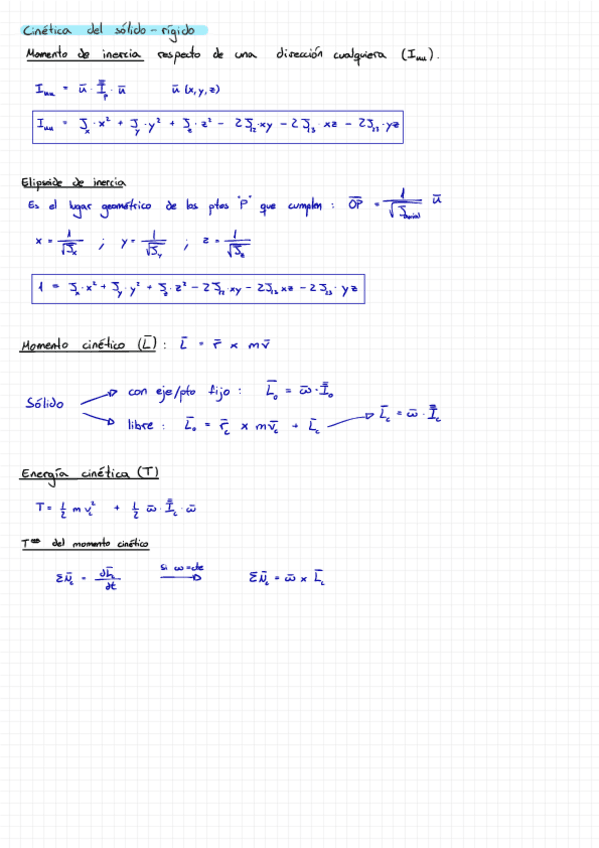 Cinética del sólido-rígido
Momento de inercia respecto de una dirección cualquiera (Iuu).
Iuu = ū · I̿p · ū    ū (x, y, z)
Iuu = Jx · x² + Jy · y² + Jz · z² - 2J12 · xy - 2J13 · xz - 2J23 · yz
Elipsoide de inercia
Es el lugar geométrico de los ptos "P" que cumplen : OP̅ = 1/√J ū
x = 1/√Jx ; y = 1/√Jy ; z = 1/√Jz
1 = Jx · x² + Jy · y² + Jz · z² - 2J12 xy - 2J13 xz - 2J23 · yz
Momento cinético (L̅) : L̅ = r̅ x mv̅
Sólido
con eje/pto fijo : L̅o = ω̅ · I̿o
libre : L̅o = r̅c x mv̅c + L̅c
L̅c = ω̅ · I̿c
Energía cinética (T)
T = 1/2 m vc² + 1/2 ω̅ · I̿c · ω̅
Tᵐᵃ del momento cinético
ΣN̅c = dL̅c/dt    si ω=cte    ΣN̅c = ω̅ x L̅c